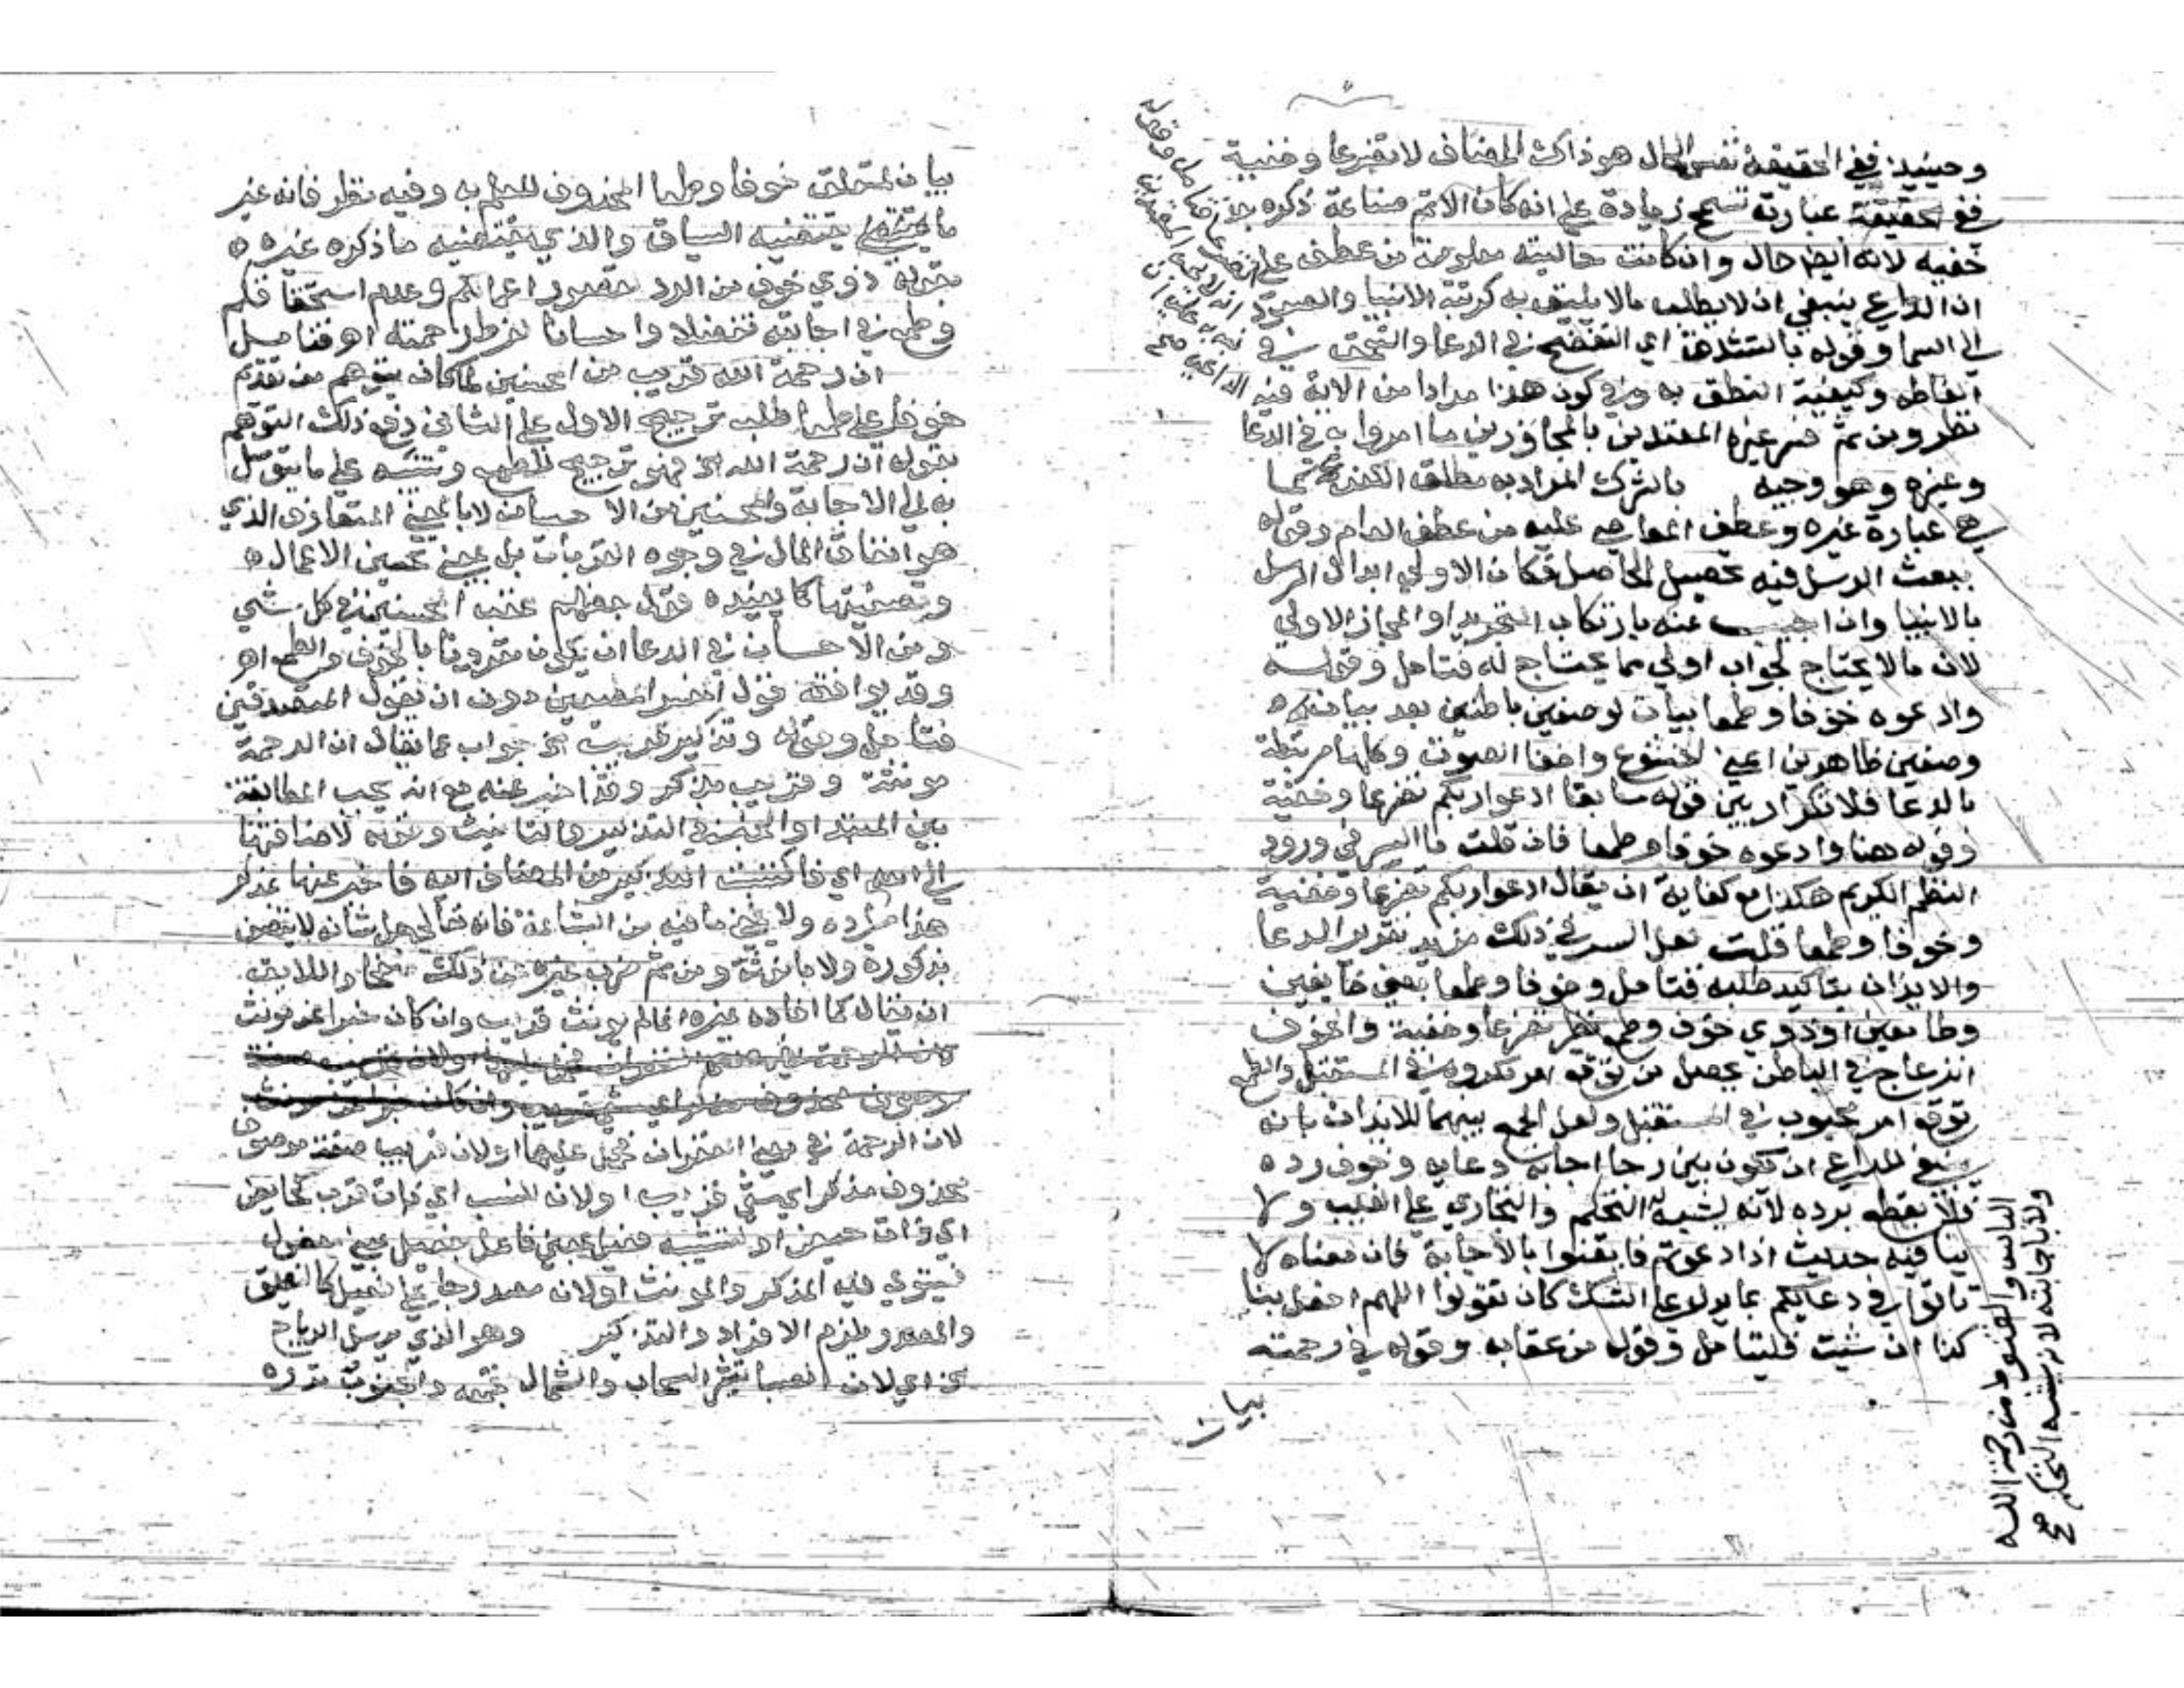 وحينيذ ففي الحقيقة نفس الحال هو ذاك المضاف لا تضرعا وخفية
ففي حقيقة عبارته تسمح زيادة على انه كان الاتم صناعة ذكره
خفيه لانه ايضا حال وان كانت حاليته معلومة من عطفه على تضرعا
ان الداعي ينبغي ان لا يطلب ما لا يليق به كرتبة الانبيا والصعود
الى السما وقوله بالتشدق اي التفصح في الدعا والتعمق في
الفاظه وكيفية النطق به وفي كون هذا مرادا من الاية فيه
نظر ومن ثم فسر غيره المعتدين بالمجاوزين ما امروا به في الدعا
وغيره وهو وجيه بالشرك المراد به مطلق الكفر كما
هي عبارة غيره وعطف المعاصي عليه من عطف العام وقوله
ببعث الرسل فيه تحصيل الحاصل فكان الاولى ابدال الرسل
بالانبيا وان اجيب عنه بارتكاب التجريد او المجاز الاولي
لان ما لا يحتاج لجواب اولى مما يحتاج له فتامل وقوله
وادعوه خوفا وطمعا بيان لوصفين باطنين بعد بيان
وصفين ظاهرين اعني الخشوع واخفا الصوت وكلها مرتبطة
بالدعا فلا تكرار بين قوله سابقا ادعوا ربكم تضرعا وخفية
وقوله هنا وادعوه خوفا وطمعا فان قلت ما السر في ورود
النظم الكريم هكذا مع كفاية ان يقال ادعوا ربكم تضرعا وخفية
وخوفا وطمعا قلت لعل السر في ذلك مزيد تقرير الدعا
والايذان بتاكيد طلبه فتامل وخوفا وطمعا بمعنى خايفين
وطامعين او ذوي خوف وطمع نظير تضرعا وخفية والخوف
انزعاج في الباطن يحصل من توقع امر مكروه في المستقبل والطمع
توقع امر محبوب في المستقبل ولعل الجمع بينهما للايذان بانه
ينبغي للداعي ان يكون بين رجا اجابة دعايه وخوف رده
فلا يقطع برده لانه يشبه التحكم والتجاري على الغيب ولا
ينافيه حديث اذا دعوتم فايقنوا بالاجابة فان معناه لا
تاتوا في دعايكم بما يدل على الشك كان تقولوا اللهم افعل بنا
كذا ان شيت فليتامل وقوله من عقابه وقوله في رحمته
بيان
الياس والقنوط من رحمة الله
ولا باجابته لانه يشبه التحكم صح
بيان لمتعلق خوفا وطمعا المحذوف للعلم به وفيه نظر فانه غير
ما يقتضيه السياق والذي يقتضيه ما ذكره غيره
بقوله ذوي خوف من الرد لقصور اعمالكم وعدم استحقاقكم
وطمع في اجابته تفضلا واحسانا لفرط رحمته اهـ فتامل
ان رحمة الله قريب من المحسنين لما كان يتوهم من تقدم
خوفا على طمعا طلب ترجيح الاول على الثاني دفع ذلك التوهم
بقوله ان رحمة الله الخ فهو ترجيح للطمع وتنبيه على ما يتوسل
به الى الاجابة والمحسنين من الاحسان لا بالمعنى المتعارف الذي
هو انفاق المال في وجوه القربات بل بمعنى تحسين الاعمال
وتصفيتها كما يفيده قول بعضهم عقب المحسنين في كل شي
ومن الاحسان في الدعا ان يكون مقرونا بالخوف والطمع اهـ
وقد يوافقه قول المفسر المطيعين دون ان يقول المتصدقين
فتامل وقوله وتذكير قريب الخ جواب عما يقال ان الرحمة
مونثة وقريب مذكر وقد اخبر عنه مع انه يجب المطابقة
بين المبتدا والخبر في التذكير والتانيث وقوله لاضافتها
الى الله اي فاكتسبت التذكير من المضاف اليه فاخبر عنها بمذكر
هذا مراده ولا يخفى ما فيه من البشاعة فانه تعالى جل شانه لا يتصف
بذكورة ولا بانوثة ومن ثم ضرب غيره عن ذلك صفحا واللايق
ان يقال كما افاده غيره انما لم يونث قريب وان كان خبرا عن مونث
لان الرحمة في معنى الغفران فحمل عليها او لان قريب صفة موصوف
محذوف مذكر اي شي قريب او لان للنسب اي ذات قرب كحايض
اي ذات حيض او لتشبيه فعيل بمعنى فاعل بفعيل بمعنى مفعول
فيستوي فيه المذكر والمونث او لان مصدر جا على فعيل كالنعيق
والمصدر يلزم الافراد والتذكير وهو الذي يرسل الرياح
الخ اي لان الصبا تثير السحاب والشمال تجمعه والجنوب تدره